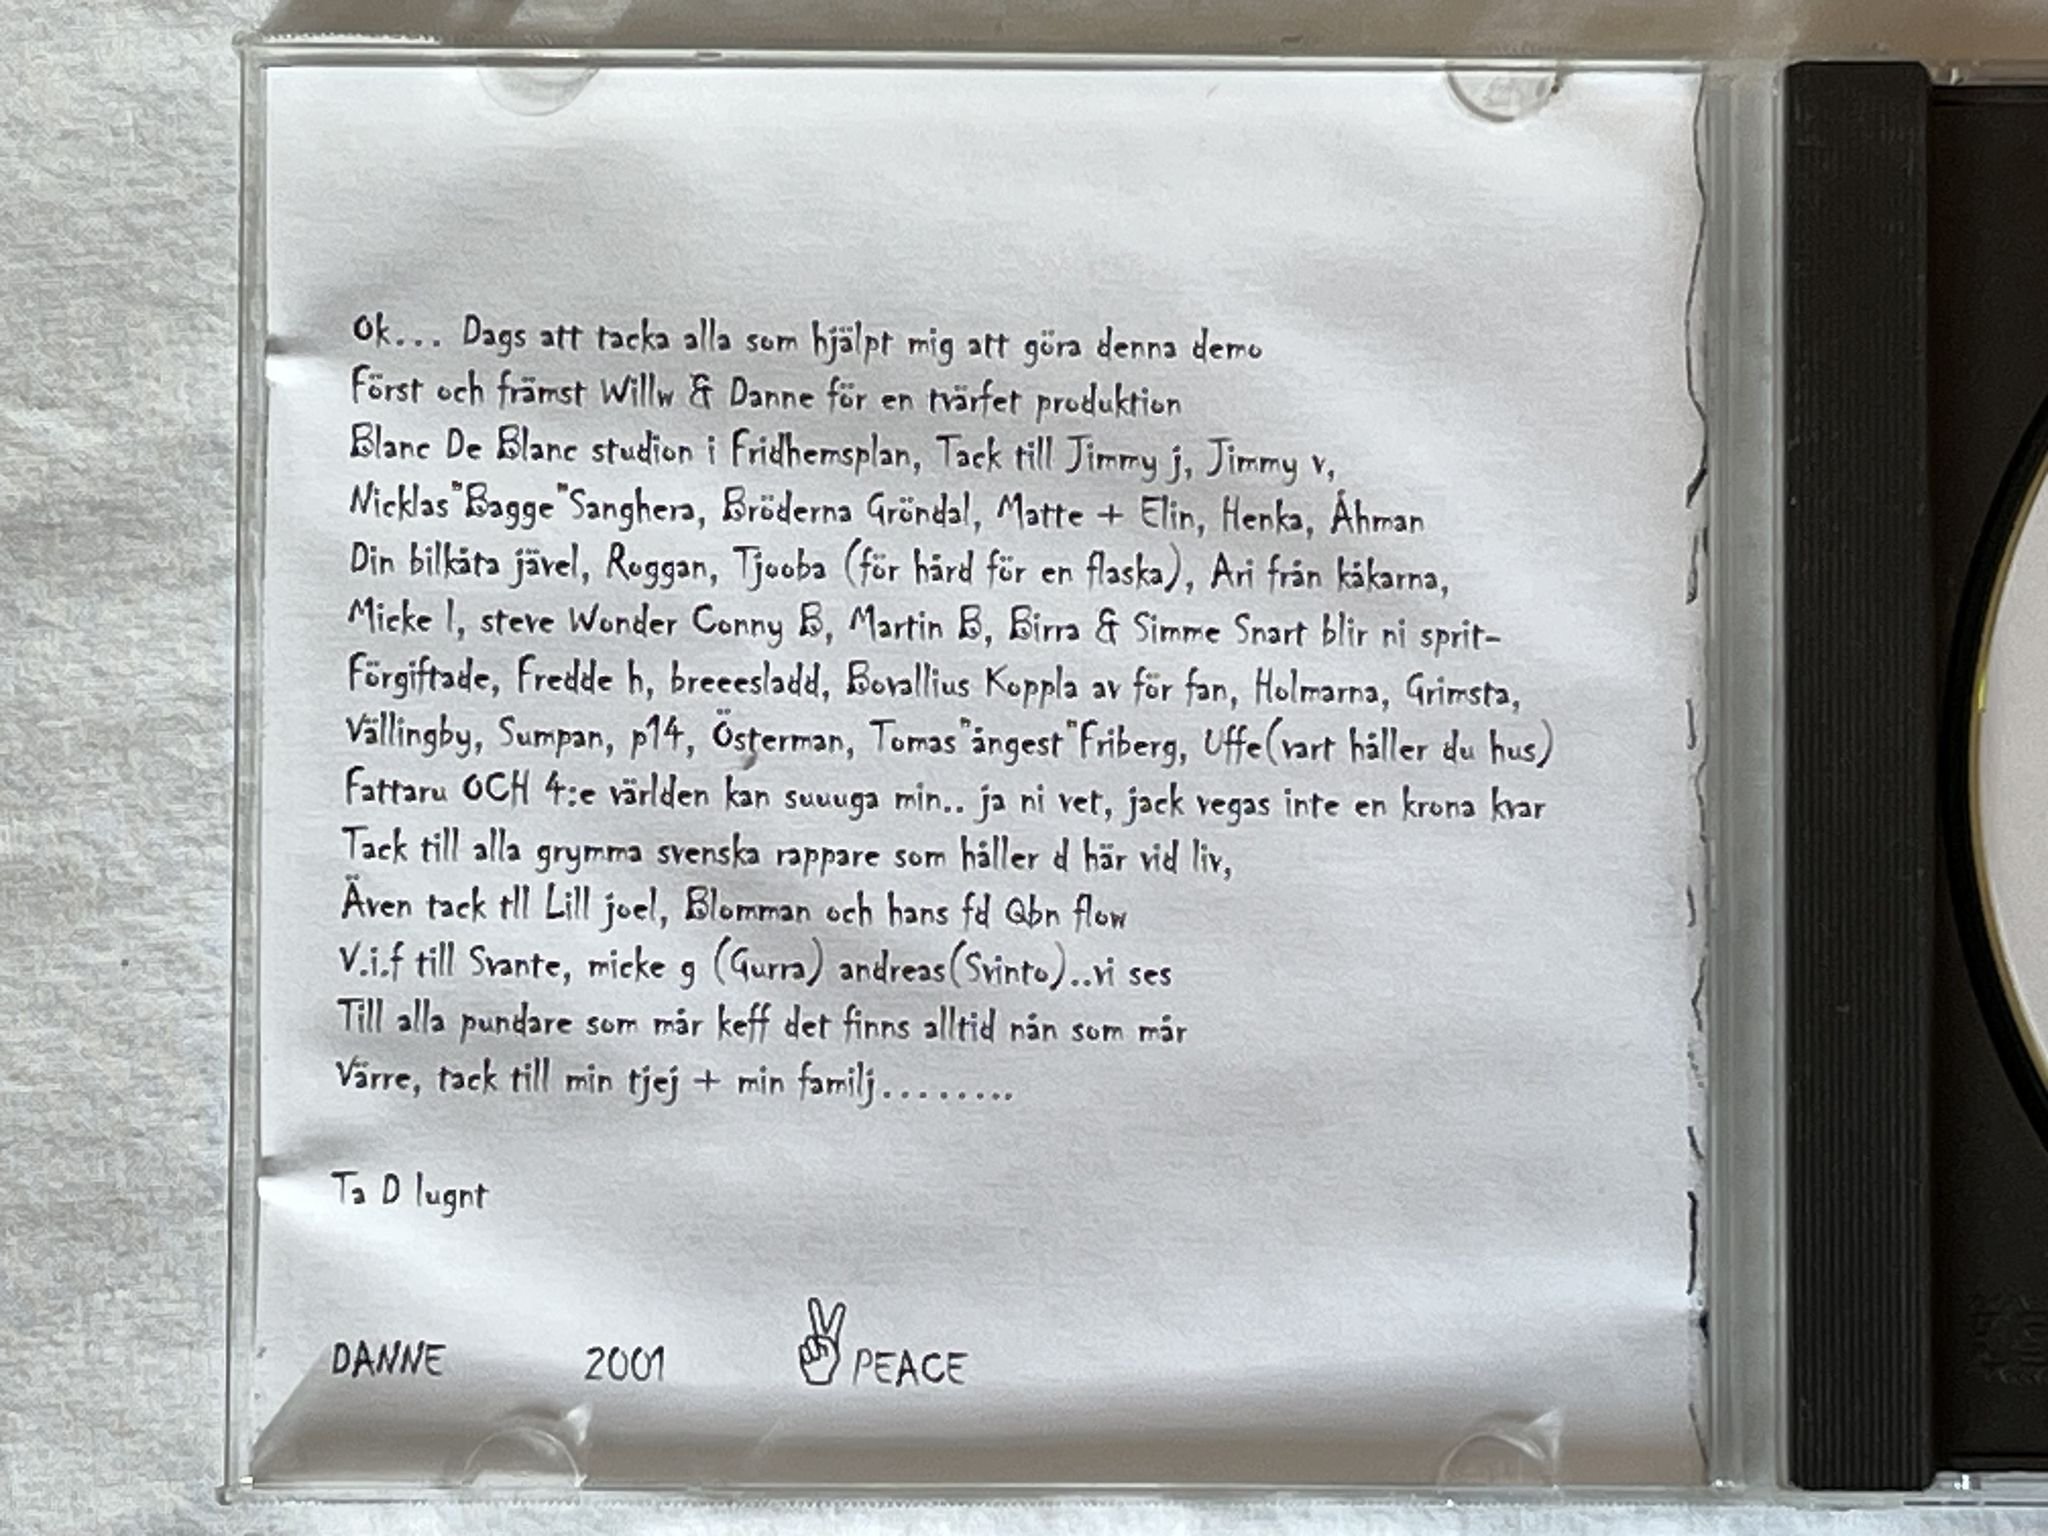 Ok... Dags att tacka alla som hjälpt mig att göra denna demo
Först och främst Willw & Danne för en tvärfet produktion
Blanc De Blanc studion i Fridhemsplan, Tack till Jimmy j, Jimmy v,
Nicklas"Bagge"Sanghera, Bröderna Gröndal, Matte + Elin, Henka, Åhman
Din bilkåta jävel, Roggan, Tjooba (för hård för en flaska), Ari från kåkarna,
Micke l, steve Wonder Conny B, Martin B, Birra & Simme Snart blir ni sprit-
Förgiftade, Fredde h, breeesladd, Bovallius Koppla av för fan, Holmarna, Grimsta,
Vällingby, Sumpan, p14, Österman, Tomas"ångest"Friberg, Uffe(vart håller du hus)
Fattaru OCH 4:e världen kan suuuga min.. ja ni vet, jack vegas inte en krona kvar
Tack till alla grymma svenska rappare som håller d här vid liv,
Även tack tll Lill joel, Blomman och hans fd Qbn flow
V.i.f till Svante, micke g (Gurra) andreas(Svinto)..vi ses
Till alla pundare som mår keff det finns alltid nån som mår
Värre, tack till min tjej + min familj........
Ta D lugnt
DANNE 2001 PEACE